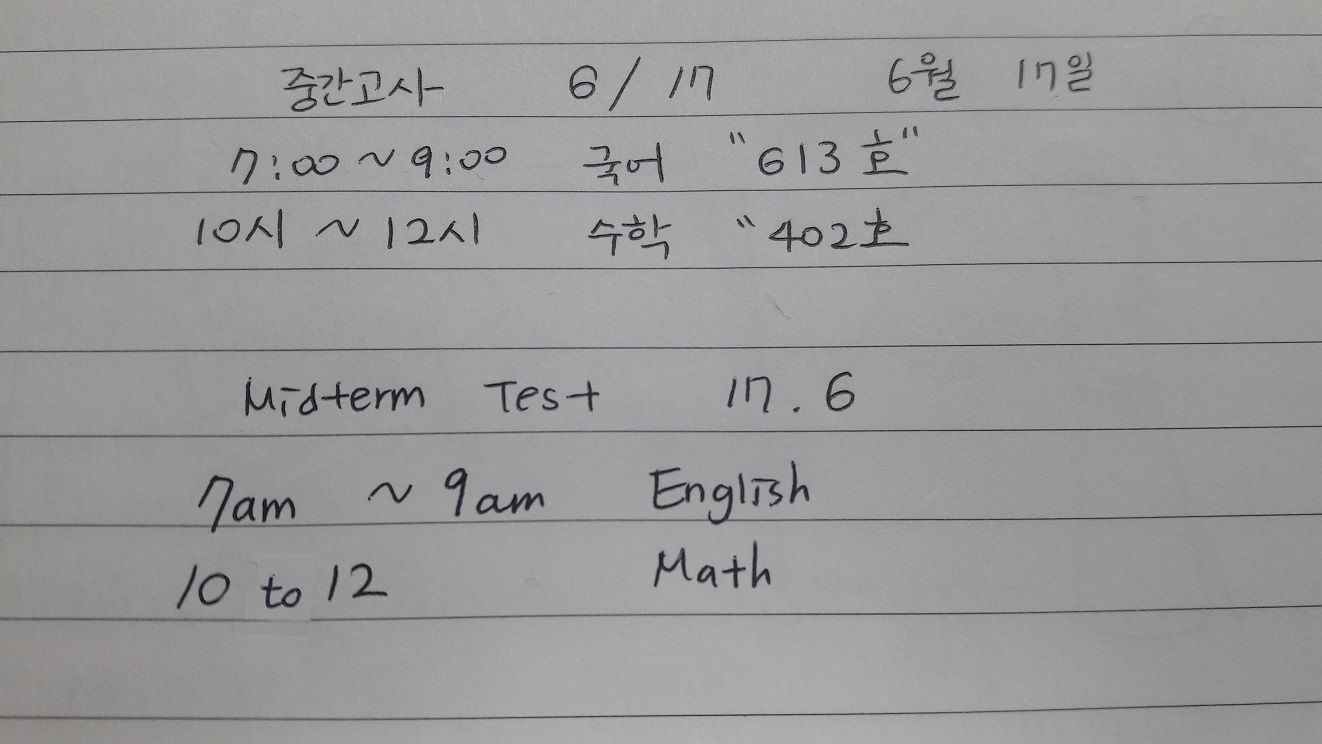 중간고사 6/17 6월 17일
7:00 ~ 9:00 국어 "613호"
10시 ~ 12시 수학 "402호
Midterm Test 17. 6
7am ~ 9am English
10 to 12 Math